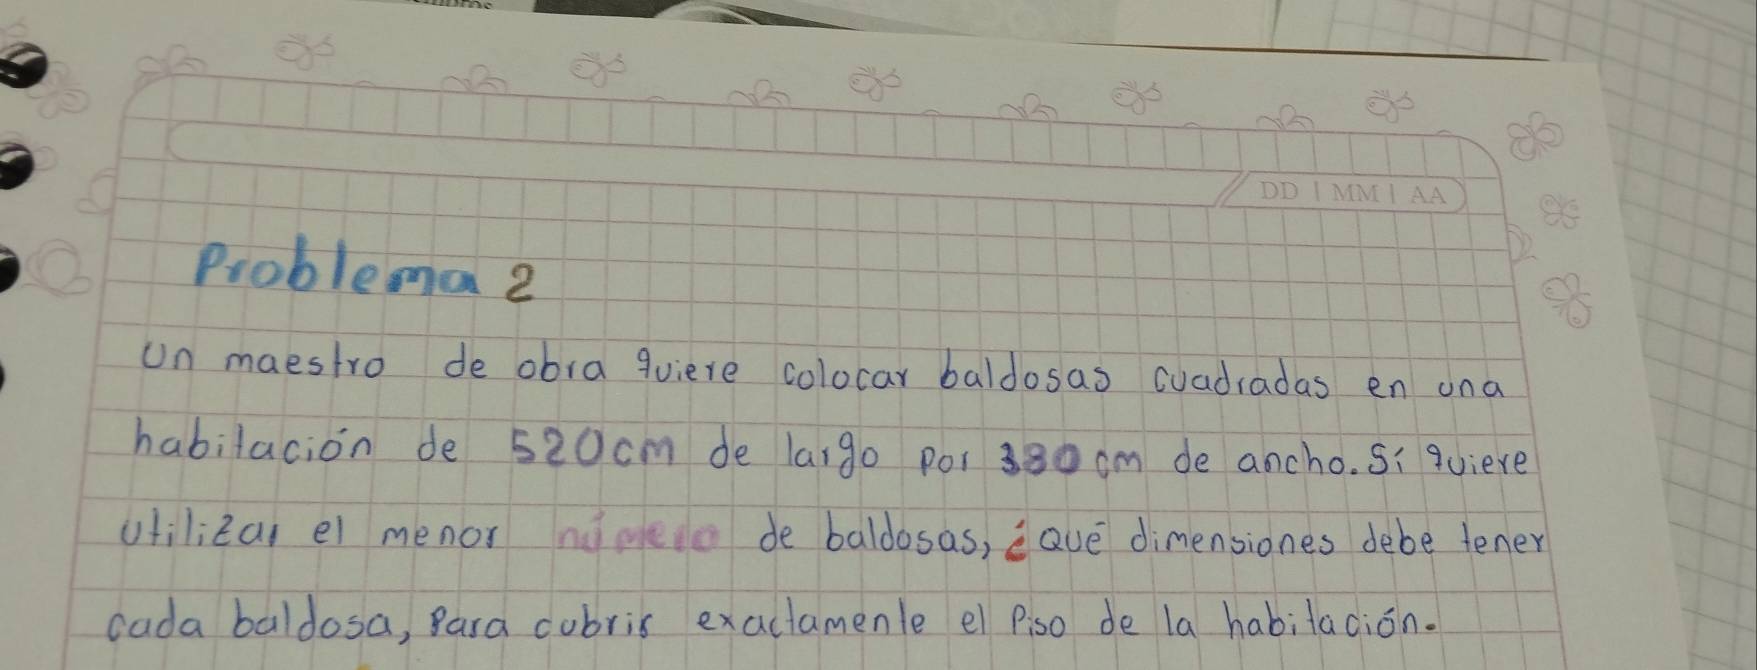 DD | MM | AA
Problema 2
Un maestro de obra quiere colocar baldosas cuadradas en una
habitación de 520cm de largo por 380 cm de ancho. Si quiere
utilizar el menor número de baldosas, ¿Qué dimensiones debe tener
cada baldosa, para cubrir exactamente el piso de la habitación.